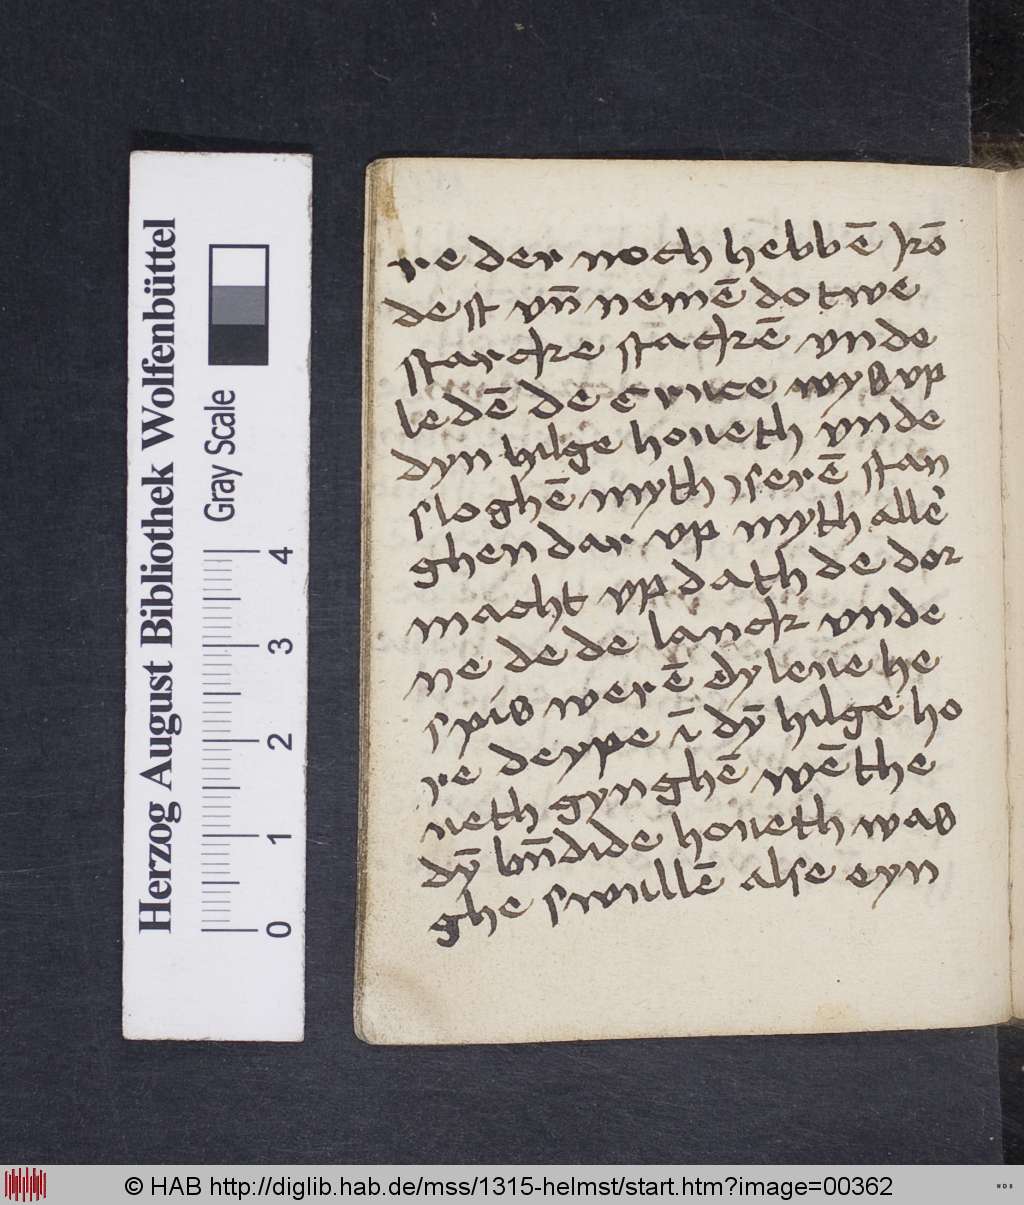 Herzog August Bibliothek Wolfenbüttel
Gray Scale
0 1 2 3 4
re der noch hebbē krō
dest vn̄ nemē do twe
starcke stackē vnde
ledē de cruce wys vp
dyn hilge houeth vnde
sloghē myth iserē stan
ghen dar vp myth alle
macht vp dath de dor
ne de de lanck vnde
spis werē dy leue he
re deype ī dȳ hilge ho
ueth gynghē wēthe
dȳ bn̄dide houeth was
ghe swullē alse eyn
© HAB http://diglib.hab.de/mss/1315-helmst/start.htm?image=00362